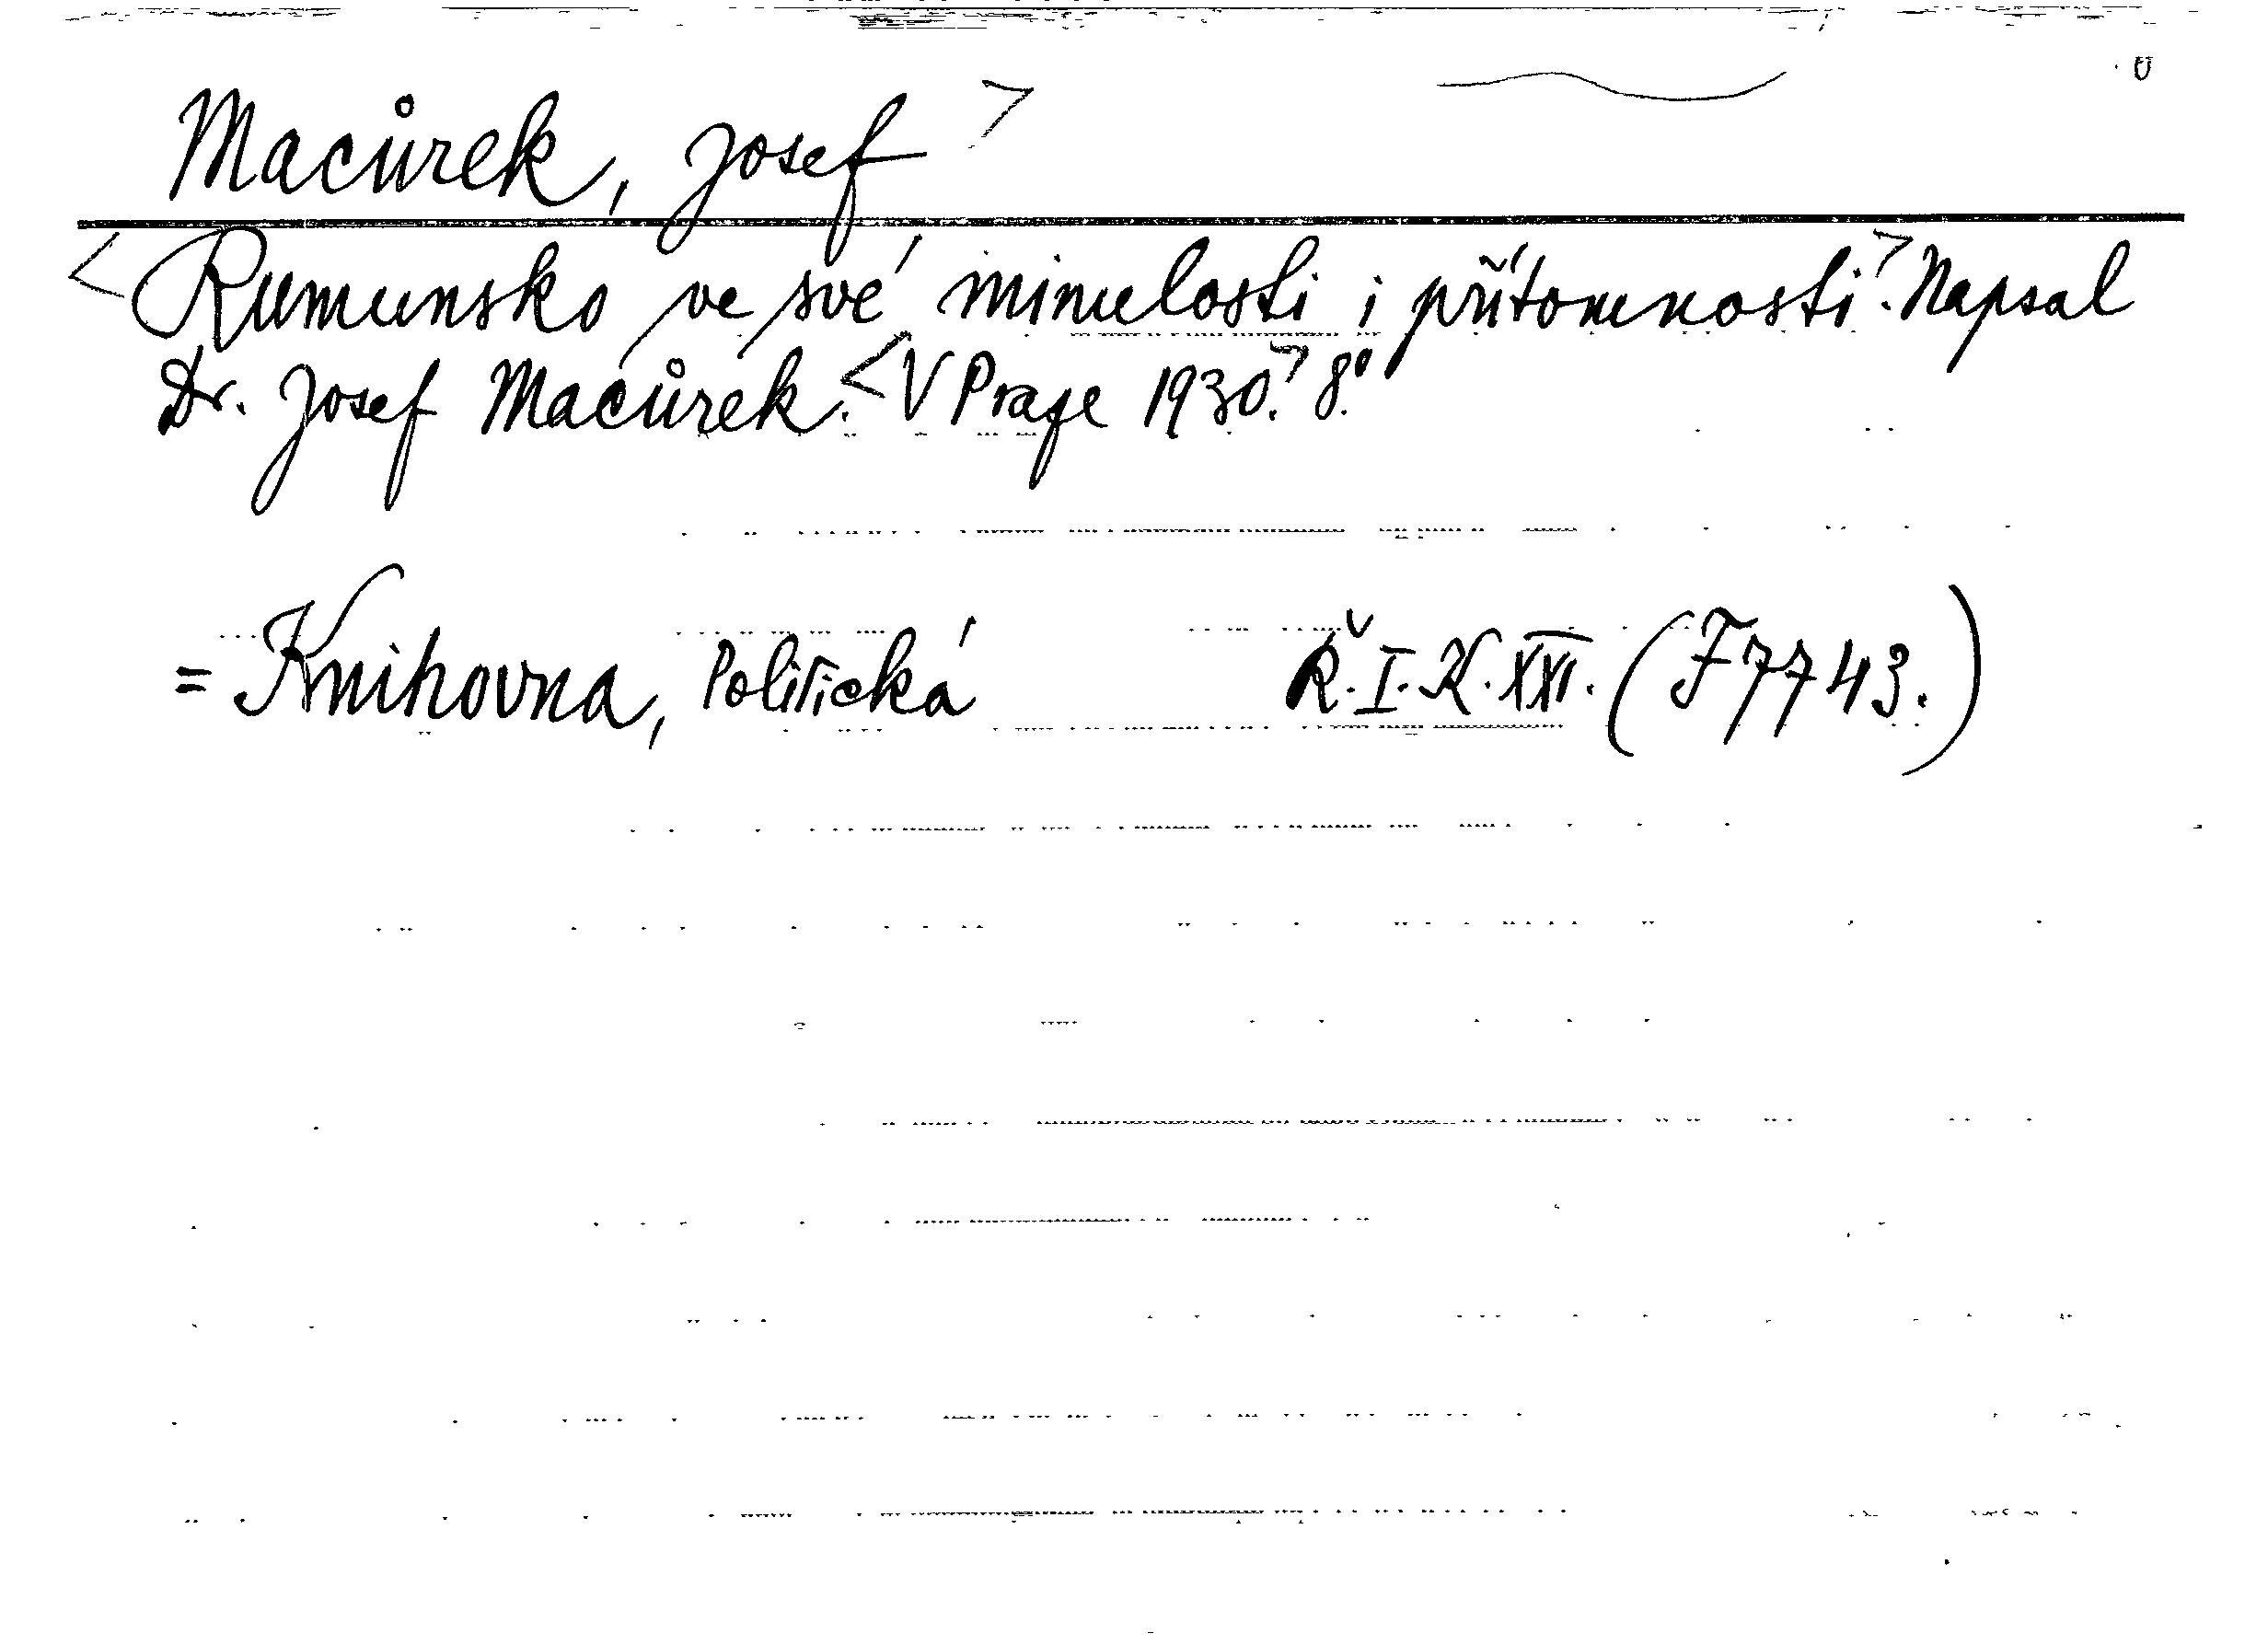 Macůrek, Josef>
<Rumunsko ve své minulosti i přítomnosti>. Napsal
Dr. Josef Macůrek. <V Praze 1930.> 8.°
= Knihovna, Politická Ř. I. K. XXI. (F 7743.)